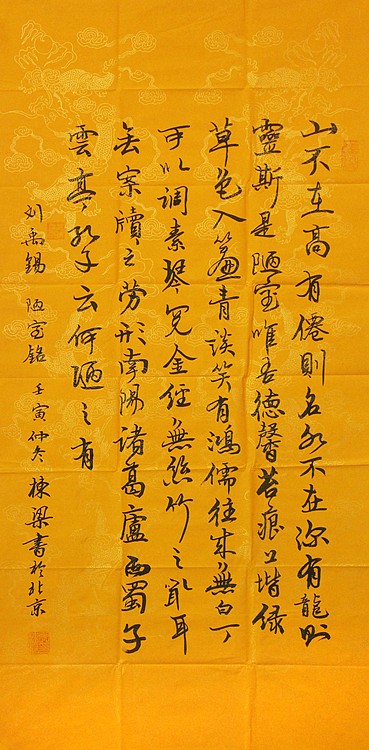 山不在高有僊則名水不在深有龍則
靈斯是陋室唯吾德馨苔痕上堦绿
草色入簾青談笑有鴻儒往来無白丁
可以调素琴閲金経無絲竹之亂耳
無案牘之劳形南陽諸葛廬西蜀子
雲亭孔子云何陋之有
刘禹锡 陋室銘 壬寅仲冬 棟梁書於北京